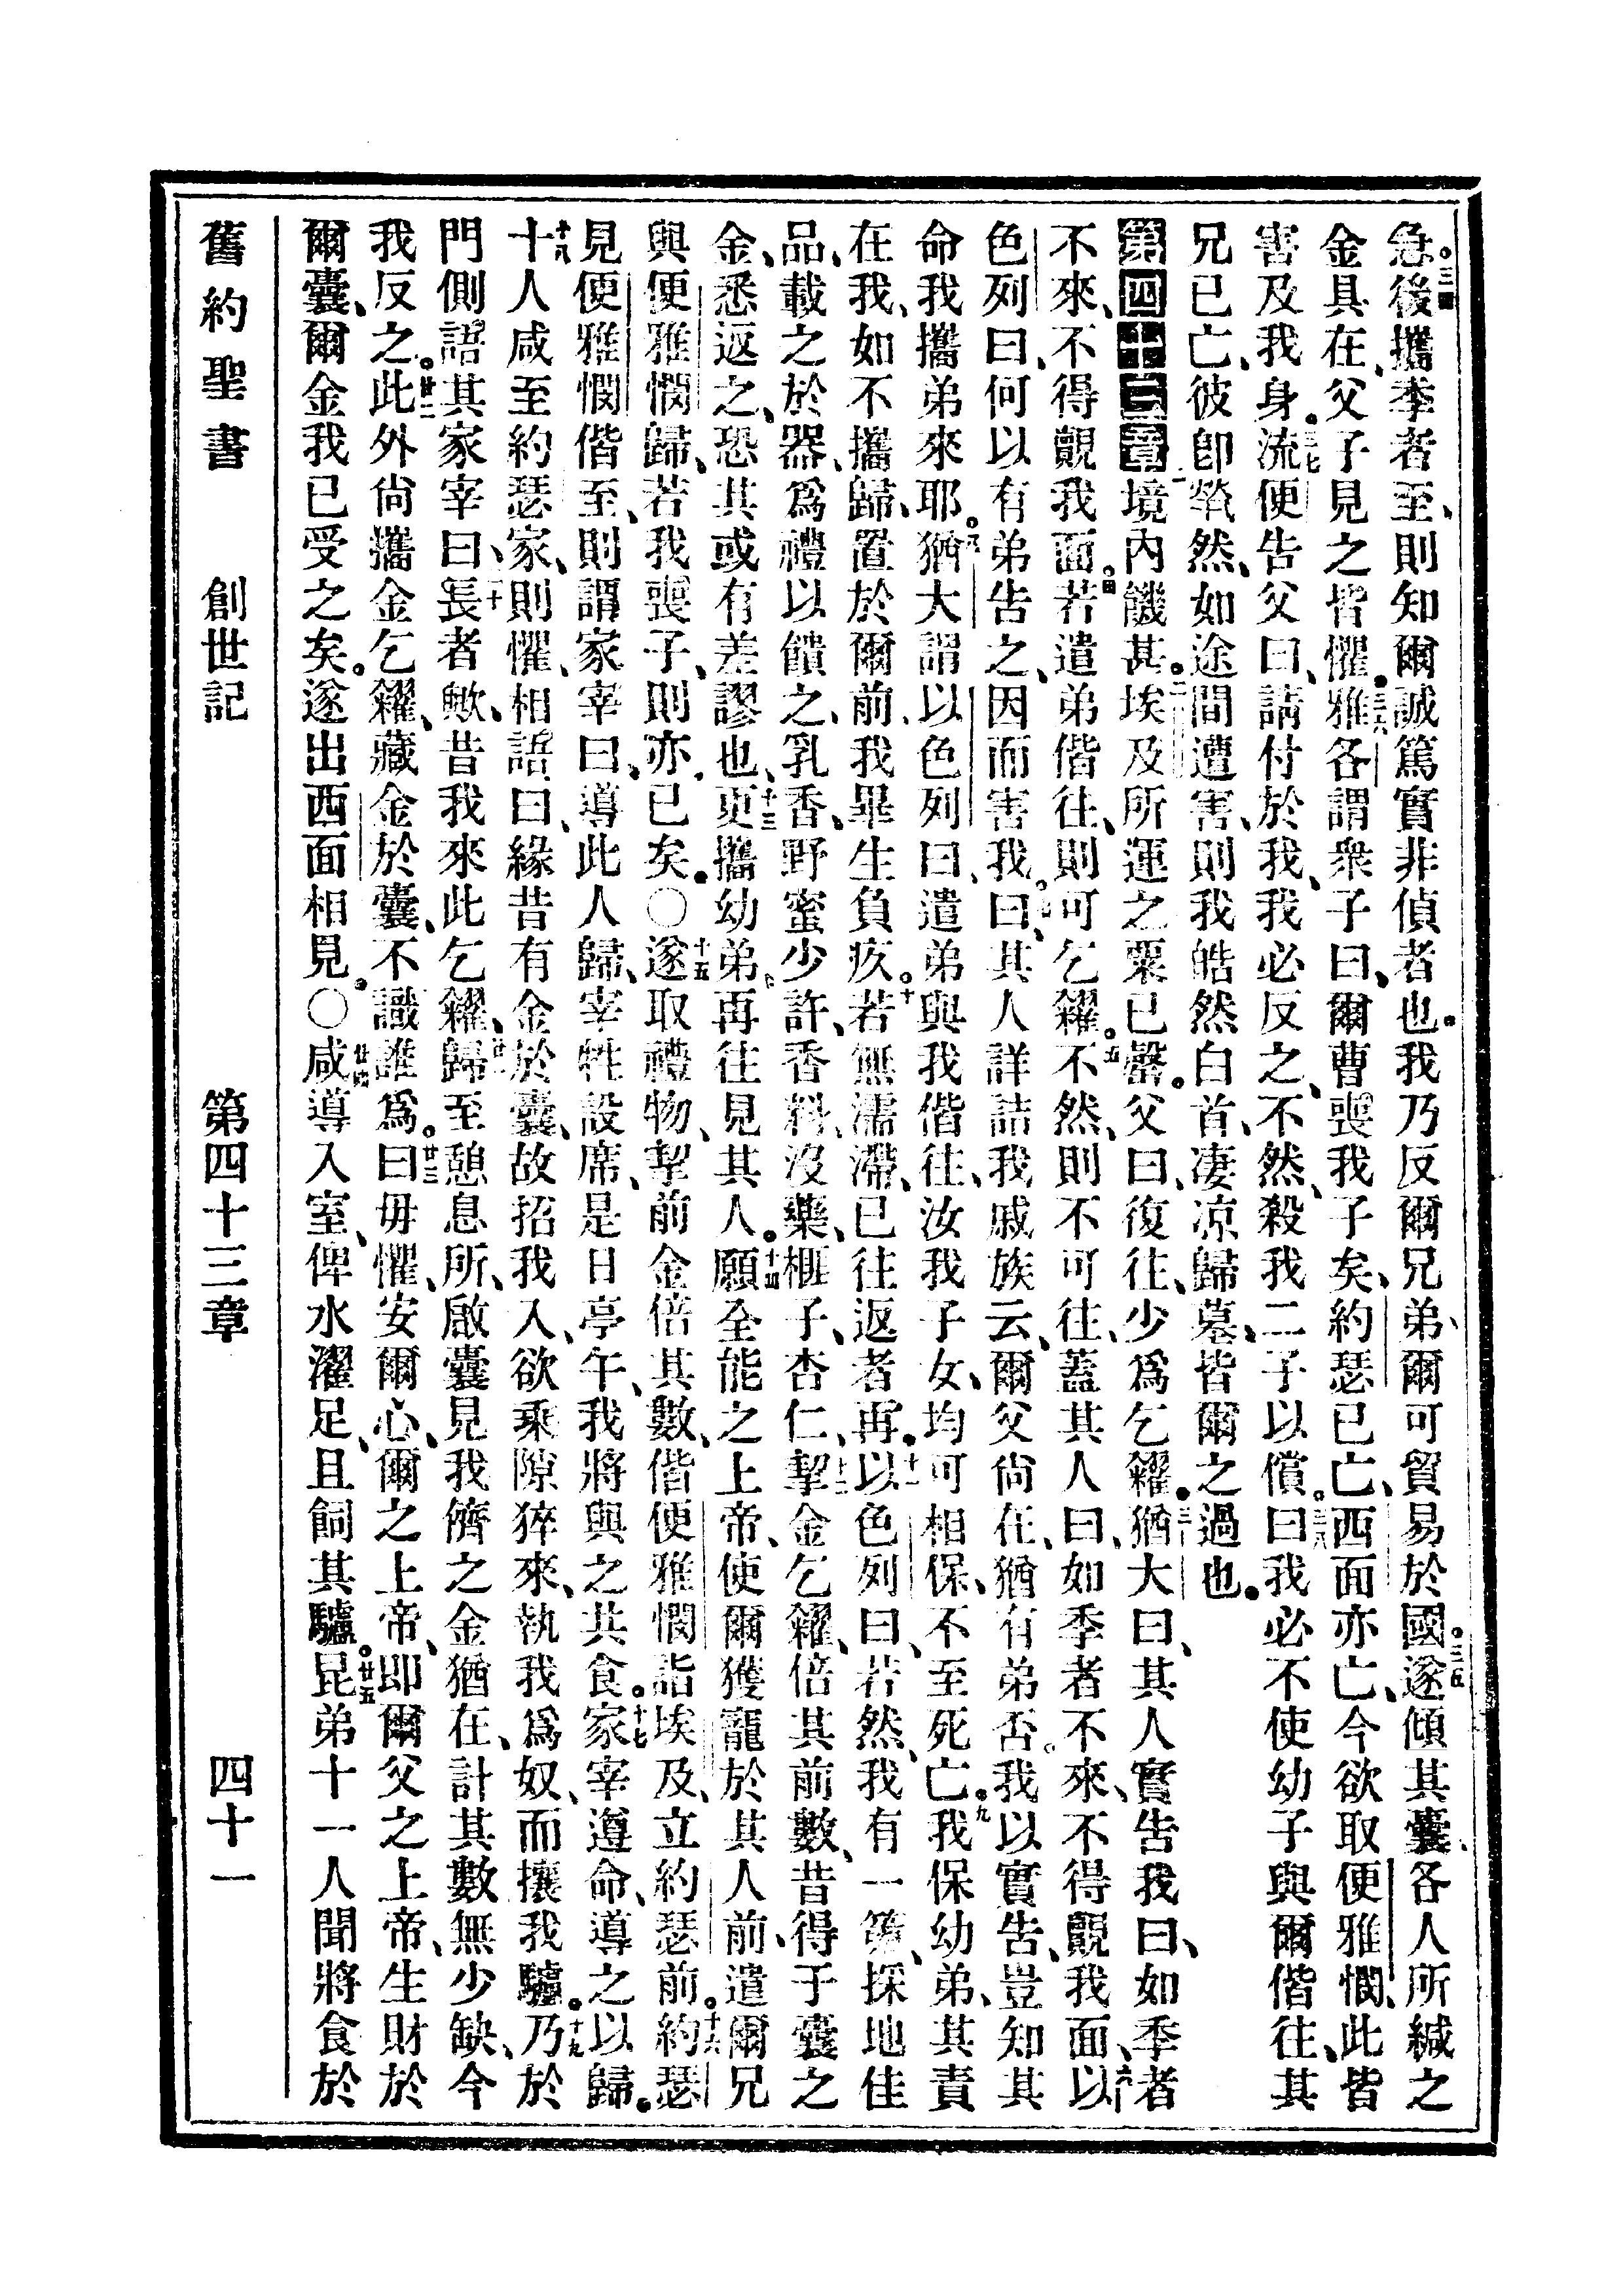 急。三四後攜季者至、則知爾誠篤實非偵者也。我乃反爾兄弟、爾可貿易於國。三五遂傾其囊、各人所緘之
金具在、父子見之皆懼。三六雅各謂衆子曰、爾曹喪我子矣、約瑟已亡、西面亦亡、今欲取便雅憫、此皆
害及我身。三七流便告父曰、請付於我、我必反之、不然、殺我二子以償。三八曰、我必不使幼子與爾偕往、其
兄已亡、彼卽煢然、如途間遭害、則我皓然白首、凄凉歸墓、皆爾之過也。
第四十三章一境內饑甚。二埃及所運之粟已罄。父曰、復往、少爲乞糴。三猶大曰、其人實告我曰、如季者
不來、不得覿我面。四若遣弟偕往、則可乞糴。五不然、則不可往、蓋其人曰、如季者不來、不得覿我面、六以
色列曰、何以有弟告之、因而害我。七曰、其人詳詰我戚族云、爾父尙在、猶有弟否。我以實告、豈知其
命我攜弟來耶。八猶大謂以色列曰、遣弟與我偕往、汝我子女、均可相保、不至死亡。九我保幼弟、其責
在我、如不攜歸、置於爾前、我畢生負疚。十若無濡滯、已往返者再。十一以色列曰、若然、我有一策、採地佳
品、載之於器、爲禮以饋之、乳香、野蜜少許、香料、沒藥、榧子、杏仁、十二挈金乞糴、倍其前數、昔得于囊之
金、悉返之、恐其或有差謬也、十三更攜幼弟、再往見其人。十四願全能之上帝、使爾獲寵於其人前、遣爾兄
與便雅憫歸、若我喪子、則亦已矣。○十五遂取禮物、挈前金倍其數、偕便雅憫詣埃及、立約瑟前。十六約瑟
見便雅憫偕至、則謂家宰曰、導此人歸、宰牲設席、是日亭午、我將與之共食。十七家宰遵命、導之以歸。
十八十人咸至約瑟家、則懼、相語曰、緣昔有金於囊、故招我入、欲乘隙猝來、執我爲奴、而攘我驢。十九乃於
門側語其家宰曰、二十長者歟、昔我來此乞糴、廿一歸至憩息所、啟囊見我儕之金猶在、計其數無少缺、今
我反之。廿二此外尙攜金乞糴、藏金於囊、不識誰爲。廿三曰毋懼、安爾心、爾之上帝、即爾父之上帝、生財於
爾囊、爾金我已受之矣。遂出西面相見。○廿四咸導入室、俾水濯足、且飼其驢。廿五昆弟十一人聞將食於
舊約聖書 創世記 第四十三章 四十一